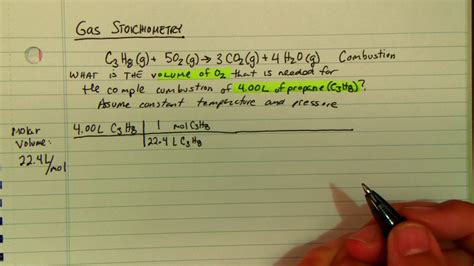 GAS STOICHIOMETRY
C3H8(g) + 5O2(g) → 3CO2(g) + 4H2O(g) Combustion
WHAT IS THE VOLUME OF O2 that is needed for
the comple combustion of 4.00L of propane (C3H8)?
Assume constant temperature and pressure
Molar
Volume:
22.4L/mol
4.00L C3H8 | 1 mol C3H8
22.4 L C3H8